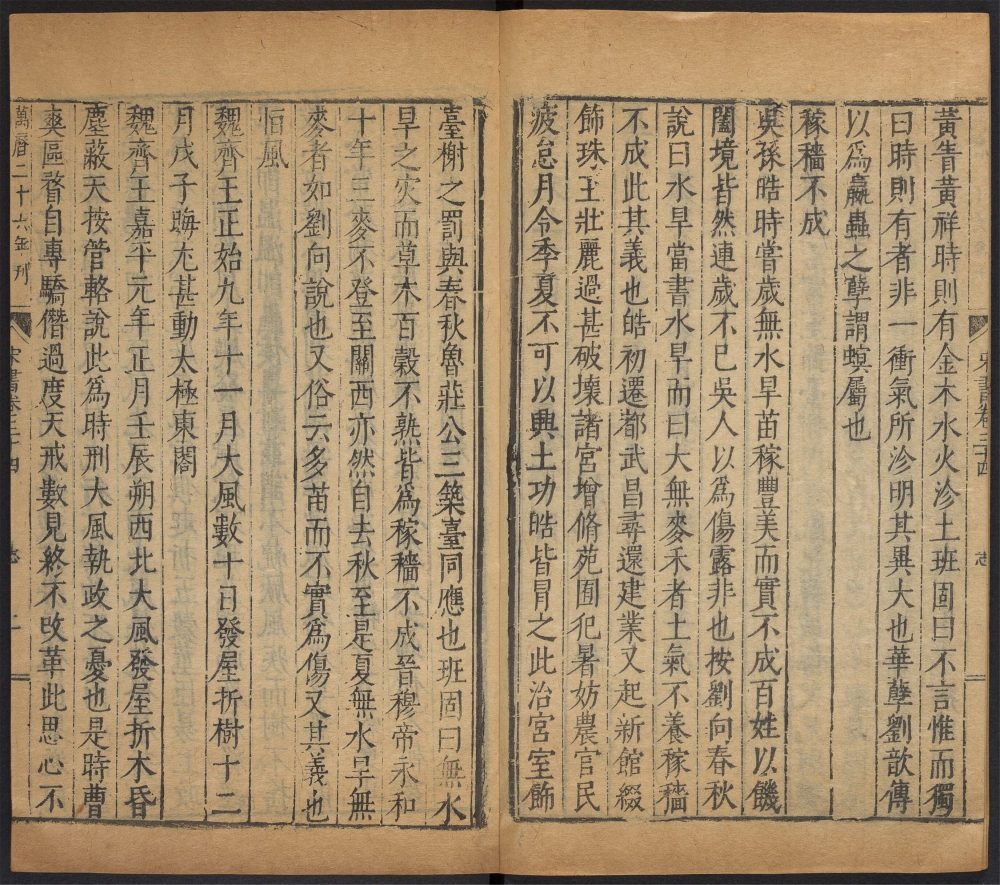 黃眚黃祥時則有金木水火沴土班固曰不言惟而獨
曰時則有者非一衝氣所沴明其異大也華孽劉歆傳
以爲蠃蟲之孽謂螟屬也
稼穡不成
吳孫皓時嘗歲無水旱苗稼豐美而實不成百姓以饑
闔境皆然連歲不已吳人以爲傷露非也按劉向春秋
說曰水旱當書水旱而曰大無麥禾者土氣不養稼穡
不成此其義也皓初遷都武昌尋還建業又起新館綴
飾珠玉壯麗過甚破壞諸宮增脩苑囿犯暑妨農官民
疲怠月令季夏不可以興土功皓皆冒之此治宮室飾
臺榭之罰與春秋魯莊公三築臺同應也班固曰無水
旱之灾而草木百穀不熟皆爲稼穡不成晉穆帝永和
十年三麥不登至關西亦然自去秋至是夏無水旱無
麥者如劉向說也又俗云多苗而不實爲傷又其義也
恒風
魏齊王正始九年十一月大風數十日發屋折樹十二
月戊子晦尤甚動太極東閤
魏齊王嘉平元年正月壬辰朔西北大風發屋折木昏
塵蔽天按管輅說此爲時刑大風執政之憂也是時曹
爽區瞀自專驕僭過度天戒數見終不改革此思心不
萬曆二十六年刊
宋書卷三十四
志
二
宋書卷三十四
志